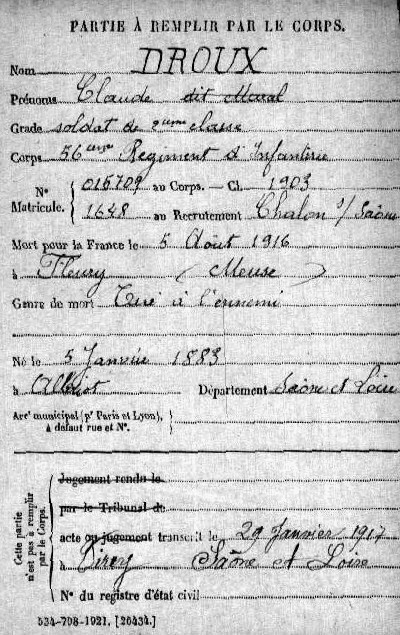 PARTIE À REMPLIR PAR LE CORPS.
Nom DROUX
Prénoms Claude dit
Grade soldat de 2ème classe
Corps 56 ème Régiment d'Infanterie
N° Matricule. { 015709 au Corps. — Cl. 1903
1648 au Recrutement Chalon s/ Saône
Mort pour la France le 5 Août 1916
à Fleury (Meuse)
Genre de mort Tué à l'ennemi
Né le 5 Janvier 1883
à Département Saône et Loire
Arr' municipal (p' Paris et Lyon), à défaut rue et N°. }
Cette partie n'est pas à remplir par le Corps.
Jugement rendu le
par le Tribunal de
acte ou jugement transcrit le 29 Janvier 1917
à Saône et Loire
N° du registre d'état civil
534-708-1921. [26434.]